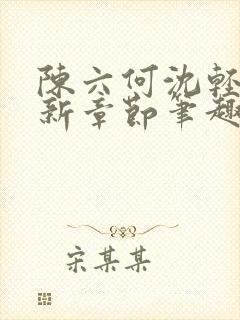 陳六何沈輕
新章節筆趣
宋某某